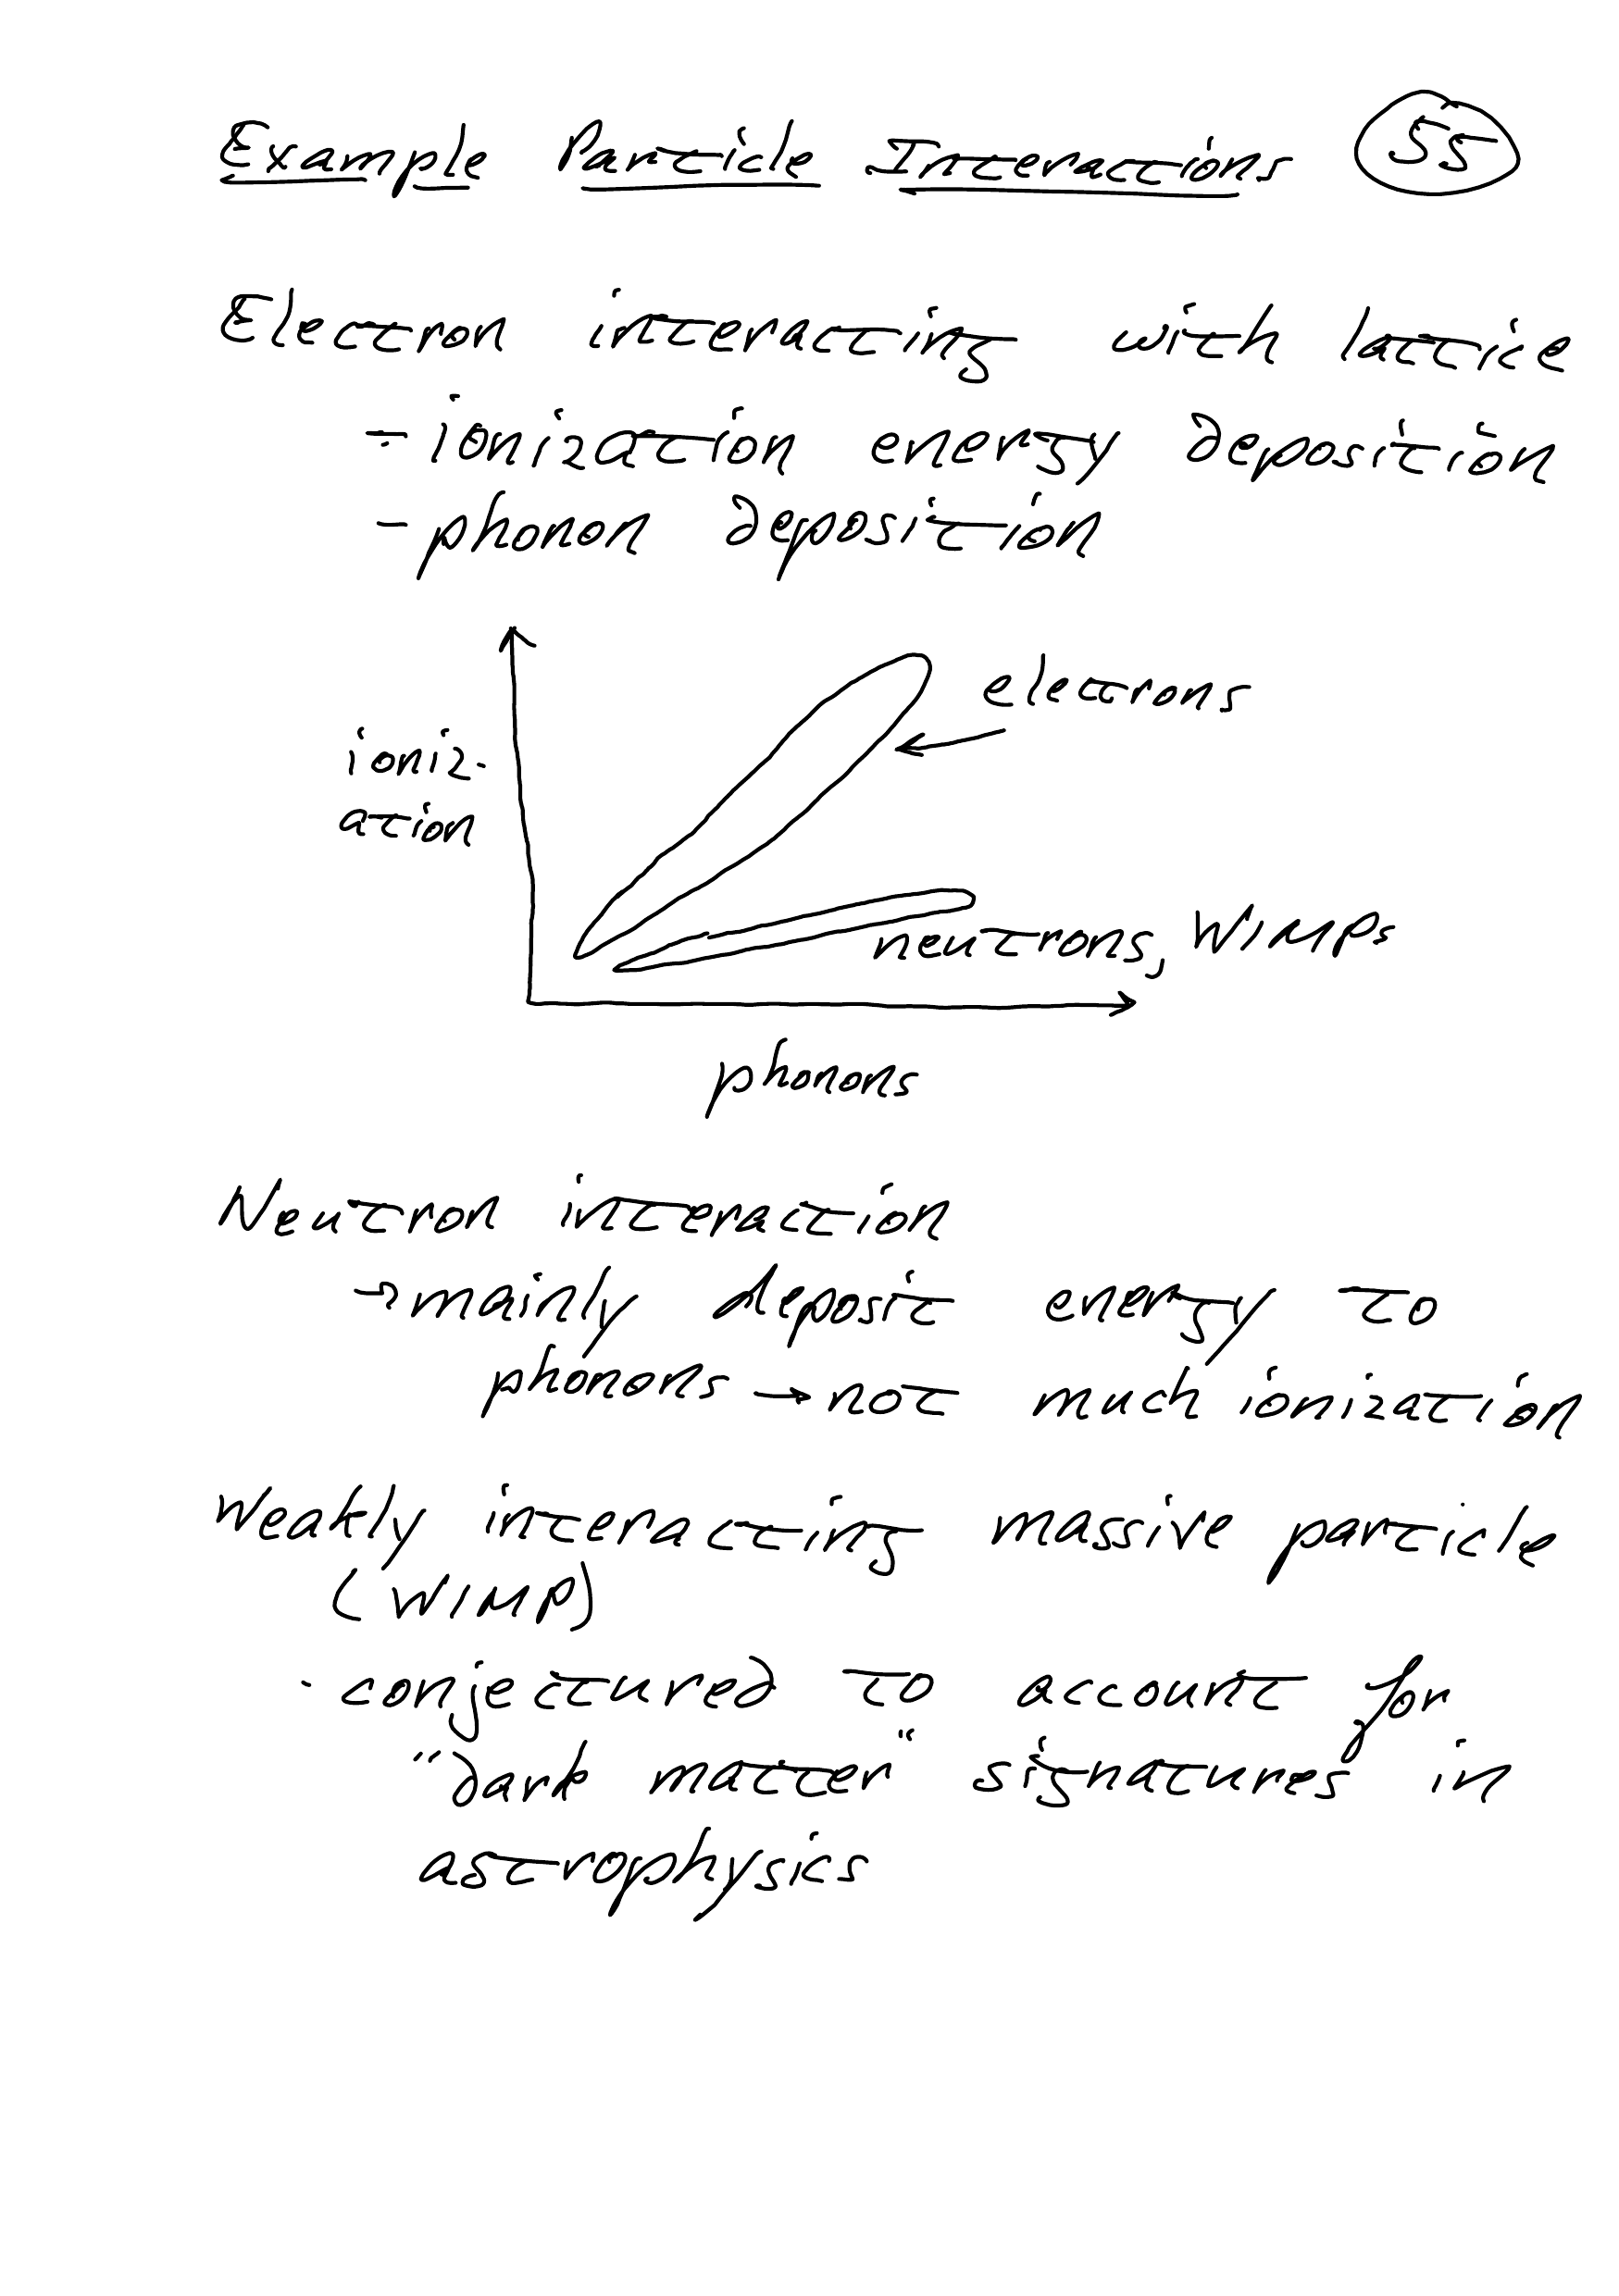 Example Particle Interactions 55
Electron interacting with lattice
- ionization energy deposition
- phonon deposition
electrons
ioniz-
ation
neutrons, WIMPs
phonons
Neutron interaction
→ mainly deposit energy to
phonons → not much ionization
Weakly interacting massive particle
(WIMP)
· conjectured to account for
"dark matter" signatures in
astrophysics